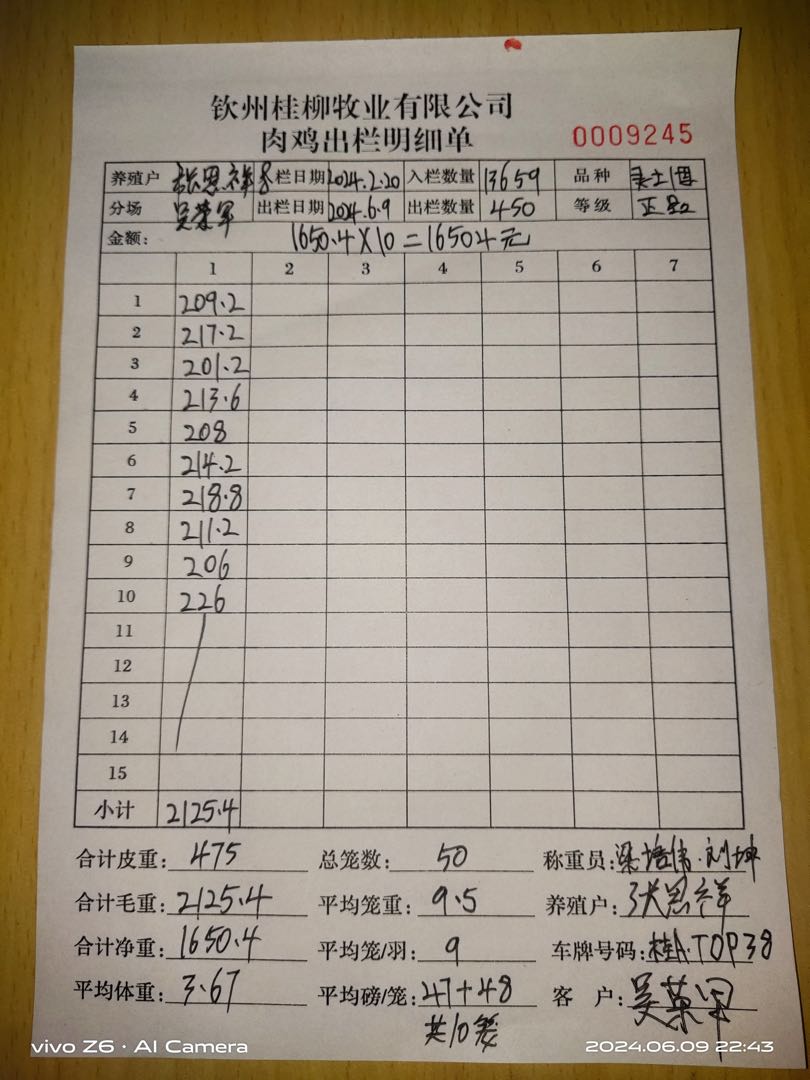 钦州桂柳牧业有限公司
肉鸡出栏明细单 0009245
养殖户 张恩祥 栏日期 2024.2.20 入栏数量 13659 品种
分场 吴荣军 出栏日期 2024.6.9 出栏数量 450 等级 正品
金额: 1650.4×10=16504元
1 2 3 4 5 6 7
1 209.2
2 217.2
3 201.2
4 213.6
5 208
6 214.2
7 218.8
8 211.2
9 206
10 226
11
12
13
14
15
小计 2125.4
合计皮重: 475 总笼数: 50 称重员: 梁培伟·刘坤
合计毛重: 2125.4 平均笼重: 9.5 养殖户: 张恩祥
合计净重: 1650.4 平均笼/羽: 9 车牌号码: 桂A·T0P38
平均体重: 3.67 平均磅/笼: 47+48 客 户: 吴荣军
共10
vivo Z6 · AI Camera 2024.06.09 22:43